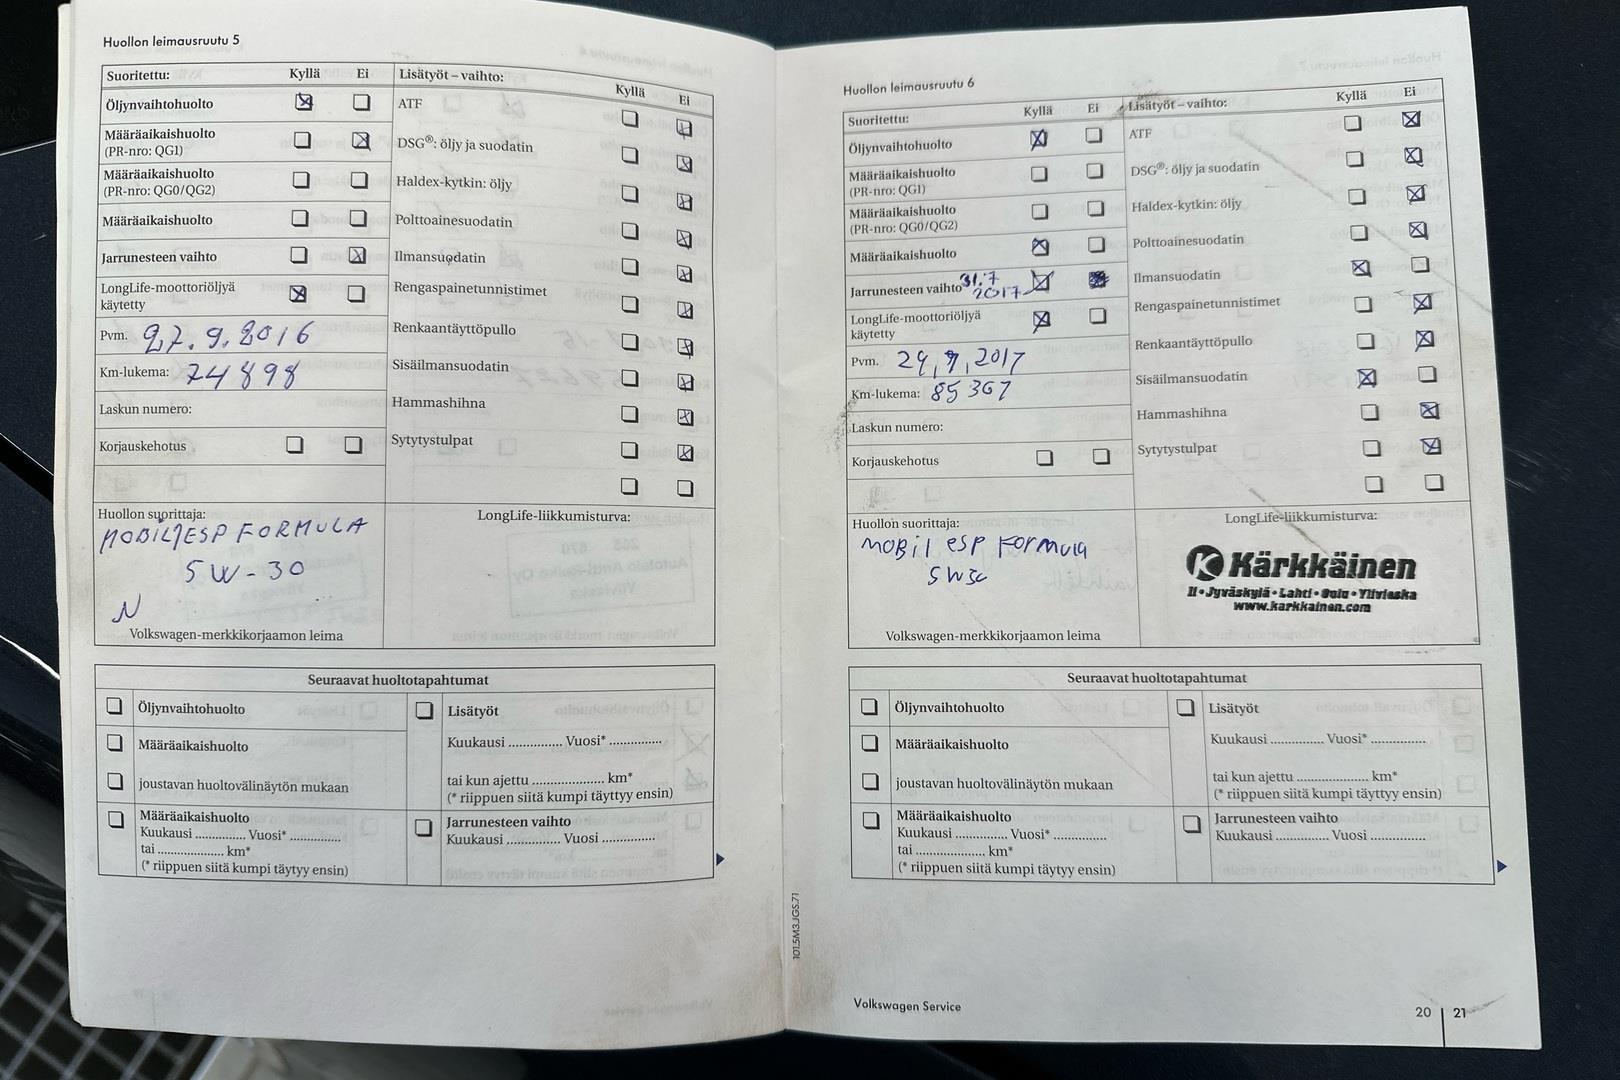 Huollon leimausruutu 5
Suoritettu: Kyllä Ei
Öljynvaihtohuolto
Määräaikaishuolto
(PR-nro: QG1)
Määräaikaishuolto
(PR-nro: QG0/QG2)
Määräaikaishuolto
Jarrunesteen vaihto
LongLife-moottoriöljyä
käytetty
Pvm. 27.9.2016
Km-lukema: 74898
Laskun numero:
Korjauskehotus
Lisätyöt – vaihto: Kyllä Ei
ATF
DSG®: öljy ja suodatin
Haldex-kytkin: öljy
Polttoainesuodatin
Ilmansuodatin
Rengaspainetunnistimet
Renkaantäyttöpullo
Sisäilmansuodatin
Hammashihna
Sytytystulpat
Huollon suorittaja:
MOBIL1 ESP FORMULA
5W-30
N
Volkswagen-merkkikorjaamon leima
LongLife-liikkumisturva:
Seuraavat huoltotapahtumat
Öljynvaihtohuolto
Määräaikaishuolto
joustavan huoltovälinäytön mukaan
Määräaikaishuolto
Kuukausi .............. Vuosi* ..............
tai .................... km*
(* riippuen siitä kumpi täytyy ensin)
Lisätyöt
Kuukausi ............... Vuosi* ..............
tai kun ajettu .................... km*
(* riippuen siitä kumpi täyttyy ensin)
Jarrunesteen vaihto
Kuukausi ............... Vuosi ..............
Huollon leimausruutu 6
Suoritettu: Kyllä Ei
Öljynvaihtohuolto
Määräaikaishuolto
(PR-nro: QG1)
Määräaikaishuolto
(PR-nro: QG0/QG2)
Määräaikaishuolto
Jarrunesteen vaihto 31.7
2017
LongLife-moottoriöljyä
käytetty
Pvm. 29,7,2017
Km-lukema: 85367
Laskun numero:
Korjauskehotus
Lisätyöt – vaihto: Kyllä Ei
ATF
DSG®: öljy ja suodatin
Haldex-kytkin: öljy
Polttoainesuodatin
Ilmansuodatin
Rengaspainetunnistimet
Renkaantäyttöpullo
Sisäilmansuodatin
Hammashihna
Sytytystulpat
Huollon suorittaja:
mobil esp Formula
5W30
Volkswagen-merkkikorjaamon leima
LongLife-liikkumisturva:
K Kärkkäinen
Ii • Jyväskylä • Lahti • Oulu • Ylivieska
www.karkkainen.com
Seuraavat huoltotapahtumat
Öljynvaihtohuolto
Määräaikaishuolto
joustavan huoltovälinäytön mukaan
Määräaikaishuolto
Kuukausi .............. Vuosi* ..............
tai .................... km*
(* riippuen siitä kumpi täytyy ensin)
Lisätyöt
Kuukausi ............... Vuosi* ..............
tai kun ajettu .................... km*
(* riippuen siitä kumpi täyttyy ensin)
Jarrunesteen vaihto
Kuukausi ............... Vuosi ..............
101.5M3.JGS.71
Volkswagen Service
20 21